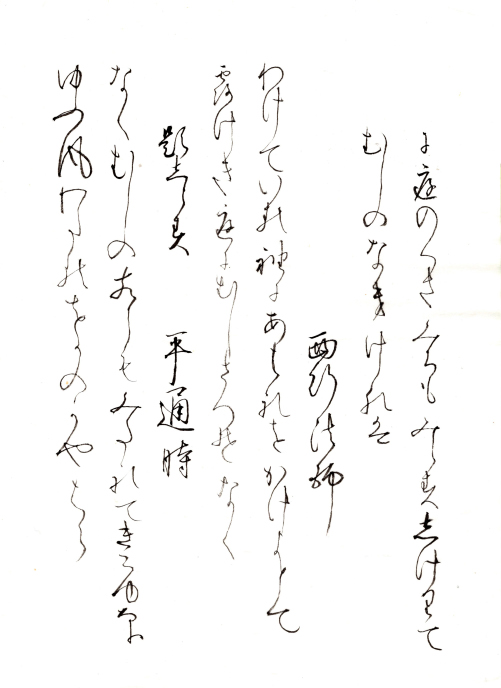 に庭のくさみちもみえすしけりて
むしのなきけれは
西行法師
わけている袖にあはれをかけよとて
露けき庭にむしさへそなく
題しらす　平通時
なくむしのこゑもみたれてきこゆなり
ゆふ風わたるをかのかやはら